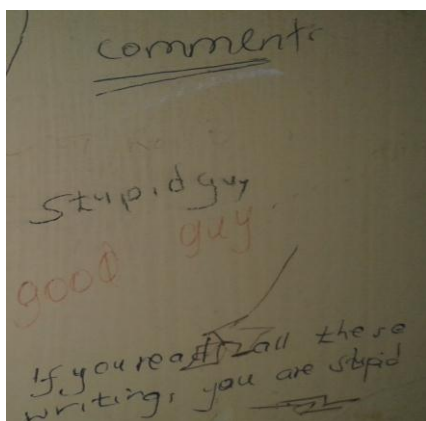 comments
Stupid guy
good guy
If you read all these
writings you are stupid